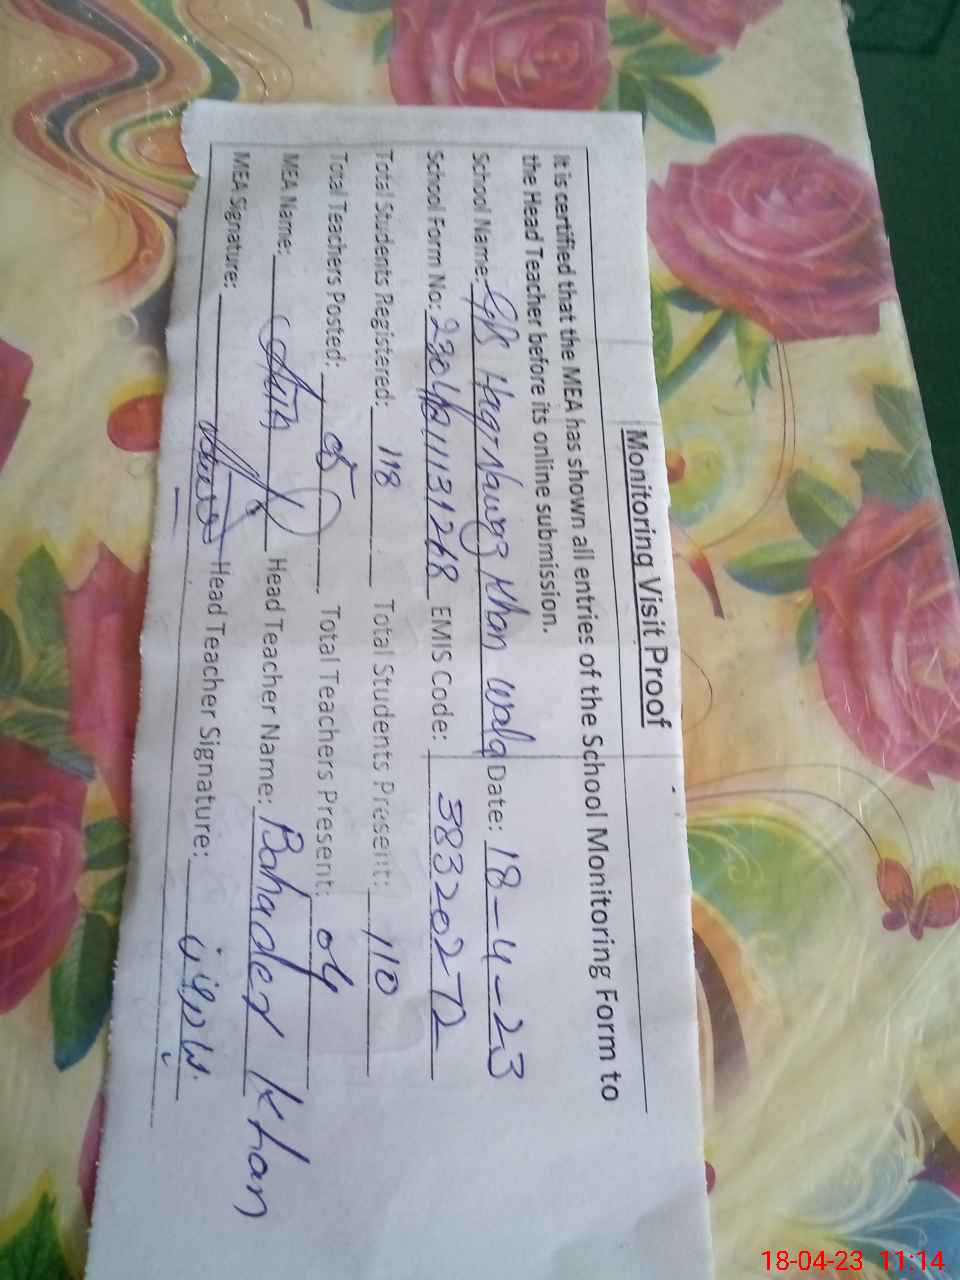 Monitoring Visit Proof
It is certified that the MEA has shown all entries of the School Monitoring Form to
the Head Teacher before its online submission.
School Name: GPS Haq Nawaz Khan wala Date: 18-4-23
School Form No: 2304211131268 EMIS Code: 38320272
Total Students Registered: 118 Total Students Present: 110
Total Teachers Posted: 05 Total Teachers Present: 04
MEA Name: Head Teacher Name: Bahader Khan
MEA Signature: Head Teacher Signature:
18-04-23 11:14